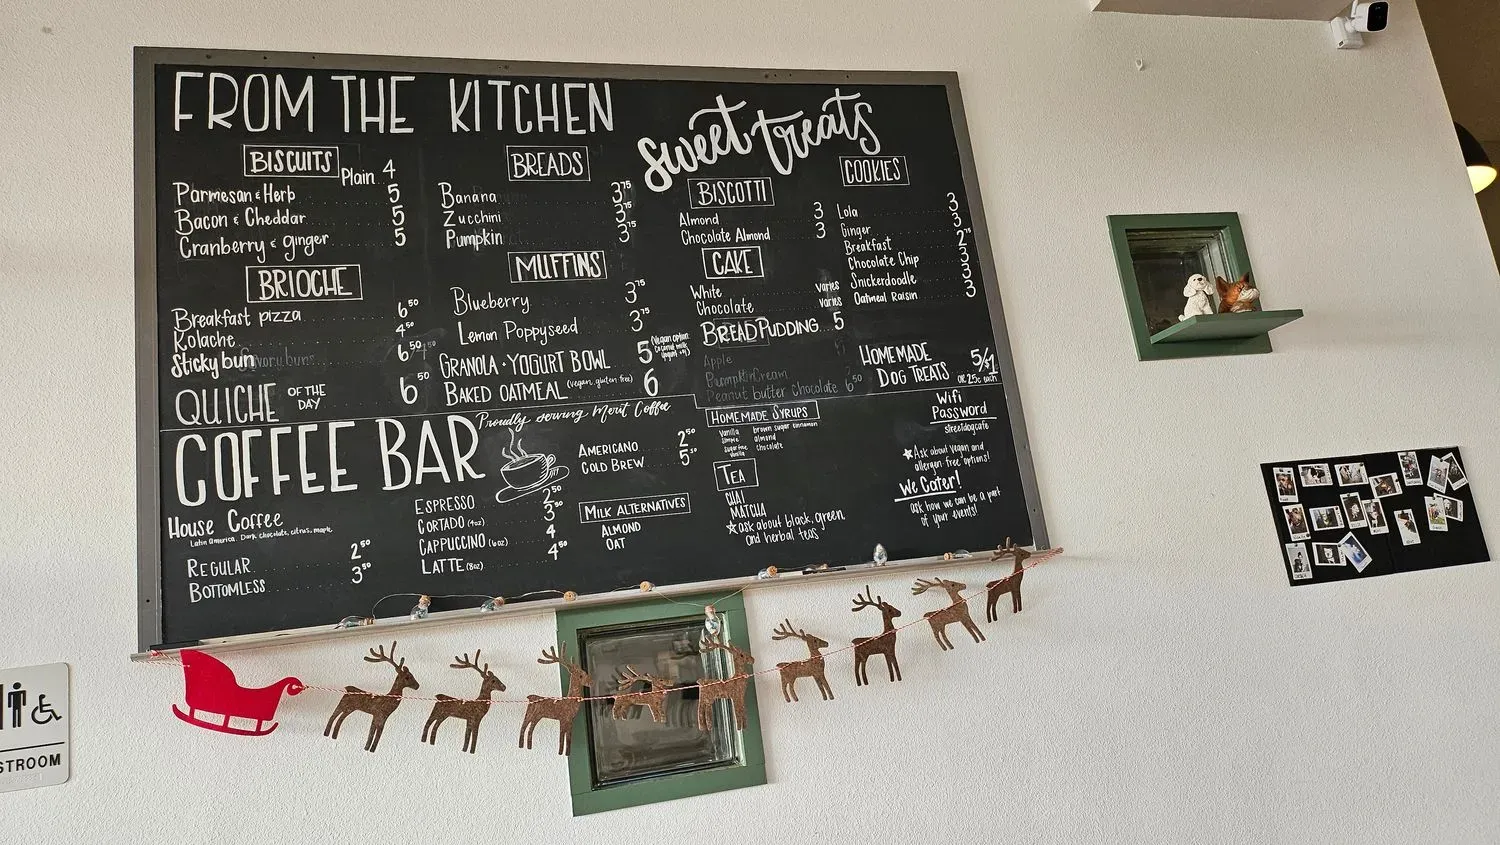 FROM THE KITCHEN
BISCUITS
Plain 4
Parmesan & Herb 5
Bacon & Cheddar 5
Cranberry & ginger 5
BRIOCHE
Breakfast pizza 6.50
Kolache 4.50
Sticky bun 6.50
QUICHE OF THE DAY 6.50
BREADS
Banana 3.75
Zucchini 3.75
Pumpkin 3.75
MUFFINS
Blueberry 3.75
Lemon Poppyseed 3.75
GRANOLA · YOGURT BOWL 5
BAKED OATMEAL (vegan, gluten free) 6
sweet treats
BISCOTTI
Almond 3
Chocolate Almond 3
CAKE
White varies
Chocolate varies
BREAD PUDDING 5
Apple
Pumpkin Cream
Peanut butter chocolate 6.50
COOKIES
Lola 3
Ginger 3
Breakfast 2.75
Chocolate Chip 3
Snickerdoodle 3
Oatmeal Raisin 3
HOMEMADE
DOG TREATS 5/$1
OR 25¢ each
COFFEE BAR
Proudly serving Merit Coffee
House Coffee
Latin America. Dark chocolate, citrus, maple
REGULAR 2.50
BOTTOMLESS 3.50
ESPRESSO 2.50
CORTADO (4oz) 3.50
CAPPUCCINO (6oz) 4
LATTE (8oz) 4.50
AMERICANO 2.50
COLD BREW 5.50
MILK ALTERNATIVES
ALMOND
OAT
HOMEMADE SYRUPS
vanilla brown sugar cinnamon
simple almond
sugar free vanilla chocolate
TEA
CHAI
MATCHA
★ask about black, green,
and herbal teas
Wifi
Password
streetdogcafe
★Ask about vegan and
allergen-free options!
We Cater!
ask how we can be a part
of your events!
STROOM